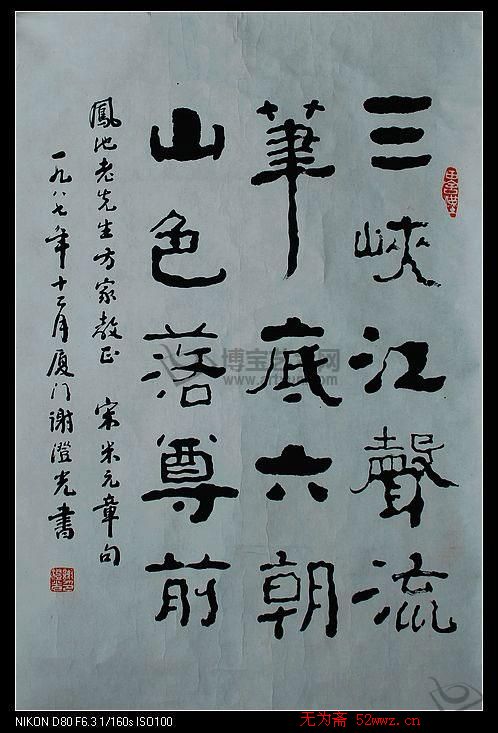 三峡江聲流
筆底六朝
山色落尊前
鳳池老先生方家教正 宋米元章句
一九八七年十二月厦门谢澄光書
博宝艺术网
NIKON D80 F6.3 1/160s ISO100
无为斋 52wwz.cn